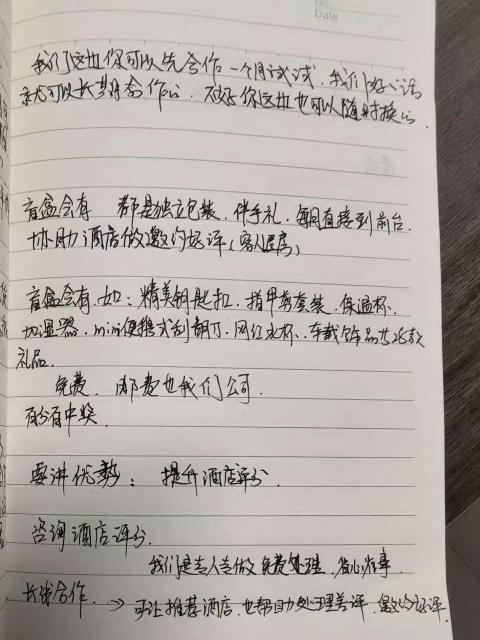 No.
Date
我们这边你可以先合作一个月试试,我们好的话
就可以长期合作的,不好你这边也可以随时换的
盲盒会有 都是独立包装,伴手礼,每月直接到前台,
协助酒店做邀约好评(客人退房)
盲盒会有,如:精美钥匙扣,指甲剪套装,保温杯、
加湿器,mini便携式刮胡刀,网红水杯、车载饰品共26款
礼品
免费,邮费也我们公司
百分百中奖
要讲优势:提升酒店评分.
咨询酒店评分.
我们是专人去做 免费处理,省心省事
长线合作. → 可让推荐酒店,也帮助处理差评,邀约好评